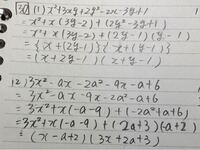 30 (1) x²+3xy+2y²-2x-3y+1
= x²+x(3y-2)+(2y²-3y+1)
= x²+x(3y-2)+(2y-1)(y-1)
= {x+(2y-1)}{x+(y-1)}
= (x+2y-1)(x+y-1)
(2) 3x²-ax-2a²-9x-a+6
= 3x²-ax-9x-2a²-a+6
= 3x²+x(-a-9)+(-2a²-a+6)
= 3x²+x(-a-9)+(2a+3)(-a+2)
= (x-a+2)(3x+2a+3)